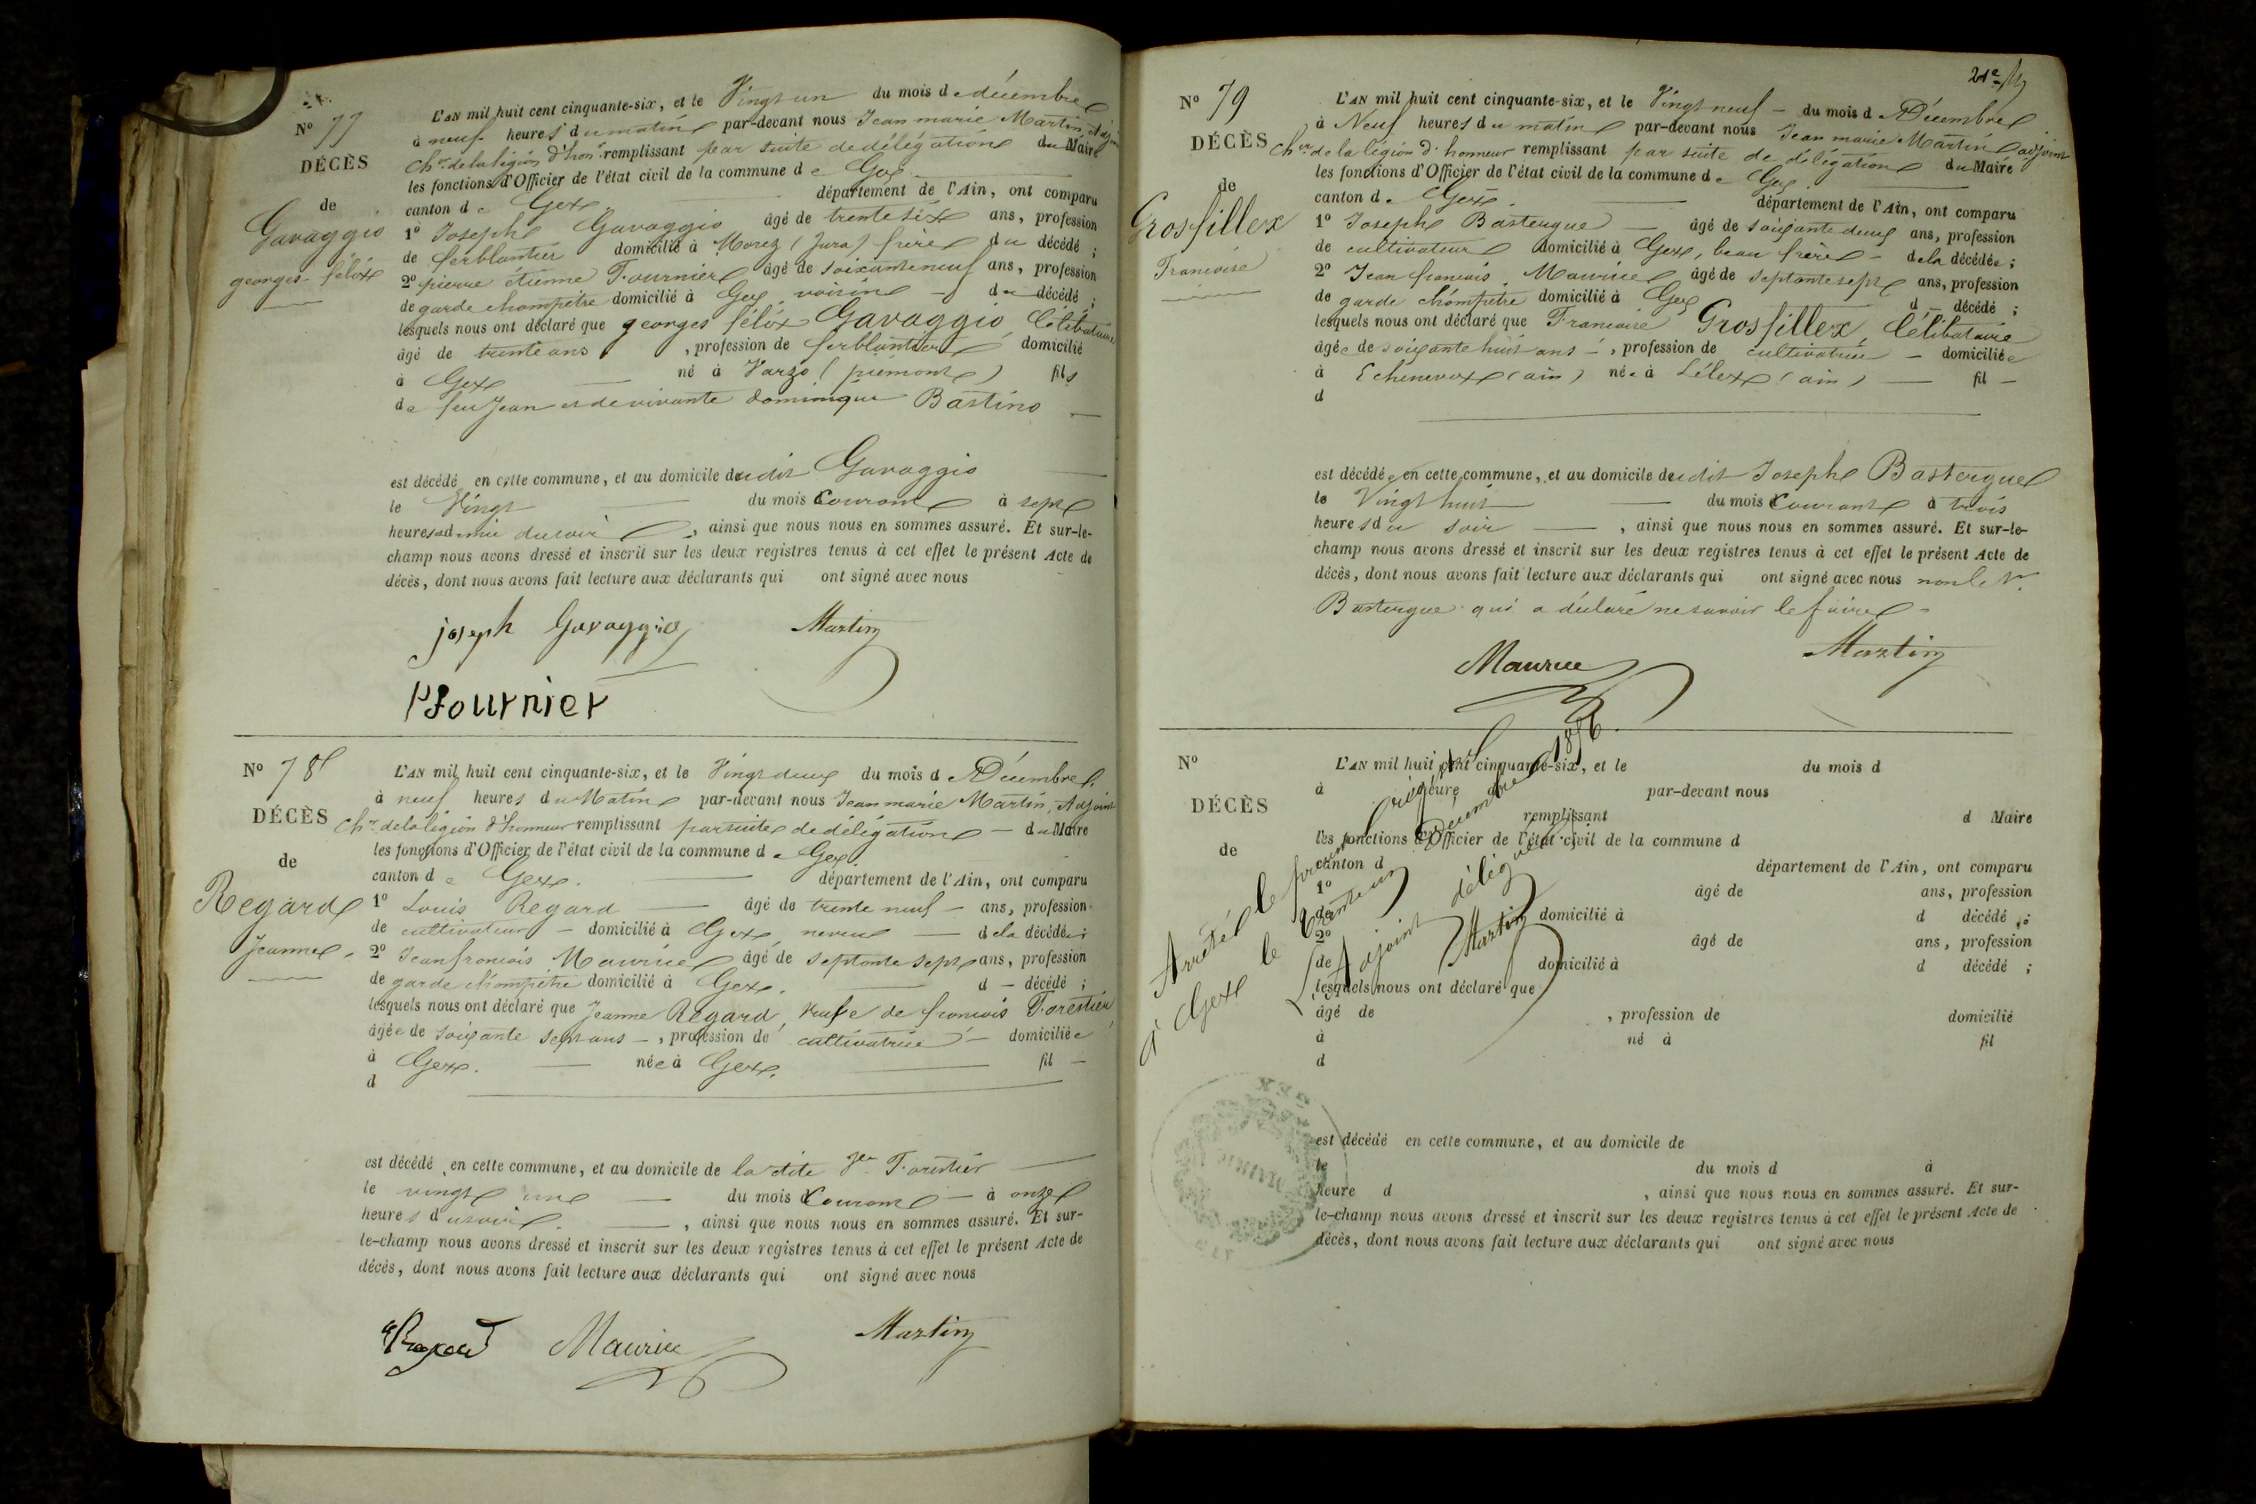 No 77
DÉCÈS
de
Gavaggio
georges félix
L'AN mil huit cent cinquante-six, et le Vingt un du mois de décembre
à neuf heures du matin par-devant nous Jean marie Martin, Adjoint
Chr de la légion d'honr remplissant par suite de délégation du Maire
les fonctions d'Officier de l'état civil de la commune de Gex
canton de Gex département de l'Ain, ont comparu
1o Joseph Gavaggio âgé de trente six ans, profession
de ferblantier domicilié à Morez (Jura) frère du décédé ;
2o pierre étienne Fournier âgé de soixante neuf ans, profession
de garde champêtre domicilié à Gex, voisin du décédé ;
lesquels nous ont déclaré que georges félix Gavaggio, Célibataire
âgé de trente ans, profession de ferblantier domicilié
à Gex né à Varzo (piémont) fils
de feu Jean et de vivante dominique Bastino
est décédé en cette commune, et au domicile dudit Gavaggio
le Vingt du mois Courant à sept
heures et demie du soir, ainsi que nous nous en sommes assuré. Et sur-le-
champ nous avons dressé et inscrit sur les deux registres tenus à cet effet le présent Acte de
décès, dont nous avons fait lecture aux déclarants qui ont signé avec nous
joseph Gavaggio Martin
P Fournier
No 78
DÉCÈS
de
Regard
Jeanne
L'AN mil huit cent cinquante-six, et le Vingt deux du mois de Décembre
à neuf heures du Matin par-devant nous Jean marie Martin, Adjoint
Chr de la légion d'honneur remplissant par suite de délégation du Maire
les fonctions d'Officier de l'état civil de la commune de Gex
canton de Gex. département de l'Ain, ont comparu
1o Louis Regard âgé de trente neuf ans, profession
de cultivateur domicilié à Gex, neveu de la décédée ;
2o Jean francois Maurice âgé de septante sept ans, profession
de garde champêtre domicilié à Gex. d décédé ;
lesquels nous ont déclaré que Jeanne Regard, veuve de francois Forestier,
âgée de soixante sept ans, profession de cultivatrice domiciliée
à Gex. née à Gex. fil
d
est décédé en cette commune, et au domicile de la dite Forestier
le vingt un du mois Courant à onze
heures du soir, ainsi que nous nous en sommes assuré. Et sur-
le-champ nous avons dressé et inscrit sur les deux registres tenus à cet effet le présent Acte de
décès, dont nous avons fait lecture aux déclarants qui ont signé avec nous
Regard Maurice Martin
21e
No 79
DÉCÈS
de
Grosfillex
Francoise
L'AN mil huit cent cinquante-six, et le Vingt neuf du mois de Décembre
à Neuf heures du matin par-devant nous Jean marie Martin adjoint
Chr de la légion d'honneur remplissant par suite de délégation du Maire
les fonctions d'Officier de l'état civil de la commune de Gex.
canton de Gex. département de l'Ain, ont comparu
1o Joseph Bastergue âgé de soixante deux ans, profession
de cultivateur domicilié à Gex, beau frère de la décédée ;
2o Jean francois Maurice âgé de septante sept ans, profession
de garde champêtre domicilié à Gex d décédé ;
lesquels nous ont déclaré que Francoise Grosfillex, Célibataire
âgée de soixante huit ans, profession de cultivatrice domiciliée
à Echenevex (ain) née à Lélex (ain) fil
d
est décédée en cette commune, et au domicile dudit Joseph Bastergue
le Vingt huit du mois Courant à trois
heures du soir, ainsi que nous nous en sommes assuré. Et sur-le-
champ nous avons dressé et inscrit sur les deux registres tenus à cet effet le présent Acte de
décès, dont nous avons fait lecture aux déclarants qui ont signé avec nous non le Sr.
Bastergue qui a déclaré ne savoir le faire
Maurice Martin
No
DÉCÈS
de
L'AN mil huit cent cinquante-six, et le du mois d
à heure par-devant nous
remplissant d Maire
les fonctions d'Officier de l'état civil de la commune d
canton d département de l'Ain, ont comparu
1o âgé de ans, profession
de domicilié à d décédé ;
2o âgé de ans, profession
de domicilié à d décédé ;
lesquels nous ont déclaré que
âgé de , profession de domicilié
à né à fil
d
est décédé en cette commune, et au domicile de
le du mois d à
heure d , ainsi que nous nous en sommes assuré. Et sur-
le-champ nous avons dressé et inscrit sur les deux registres tenus à cet effet le présent Acte de
décès, dont nous avons fait lecture aux déclarants qui ont signé avec nous
Arrêté le présent
à Gex le trente un Décembre 1856.
L'Adjoint délégué
Martin
GEX